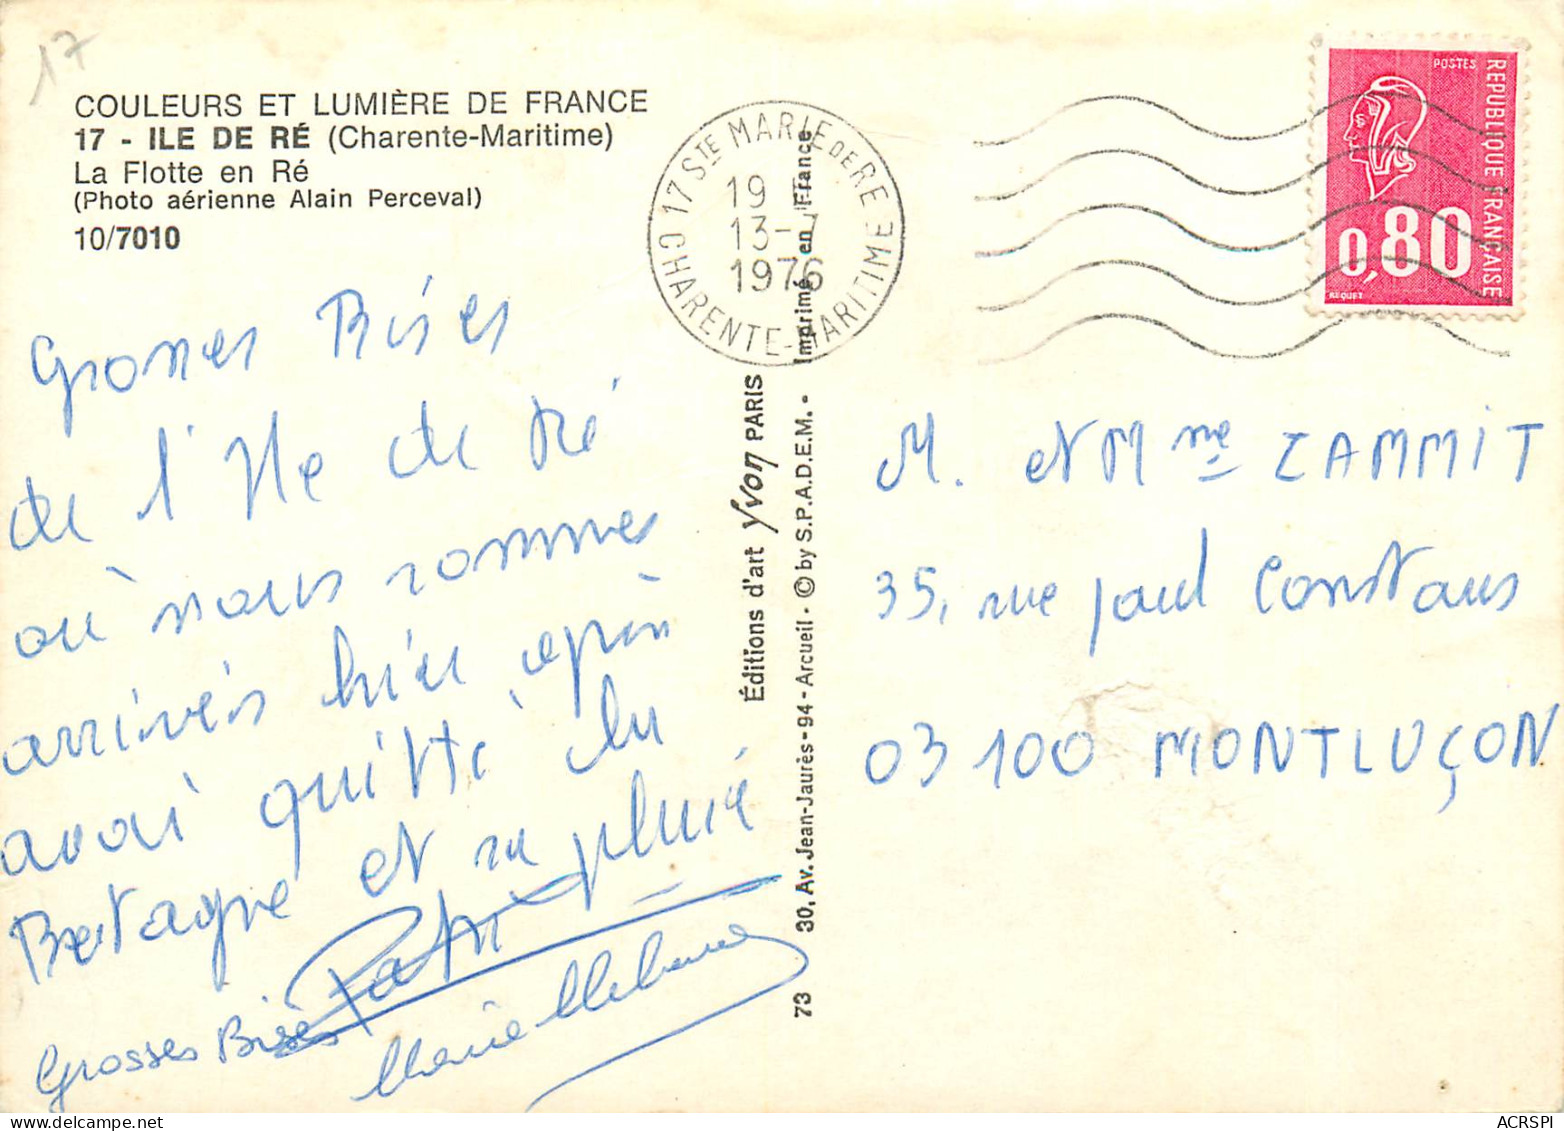 17
COULEURS ET LUMIÈRE DE FRANCE
17 - ILE DE RÉ (Charente-Maritime)
La Flotte en Ré
(Photo aérienne Alain Perceval)
10/7010
17 STE MARIE DE RE
19 H
13-7
1976
CHARENTE-MARITIME
POSTES
REPUBLIQUE FRANÇAISE
0,80
BEQUET
Grosses Bises
de l'Ile de Ré
où nous sommes
arrivés hier après
avoir quitté la
Bretagne et sa pluie
Grosses Bises
Marie
Éditions d'art Yvon PARIS
30, Av. Jean-Jaurès - 94 - Arcueil - © by S.P.A.D.E.M. - Imprimé en France
73
M. et Mme ZAMMIT
35, rue Paul Constans
03100 MONTLUÇON
ACRSPI